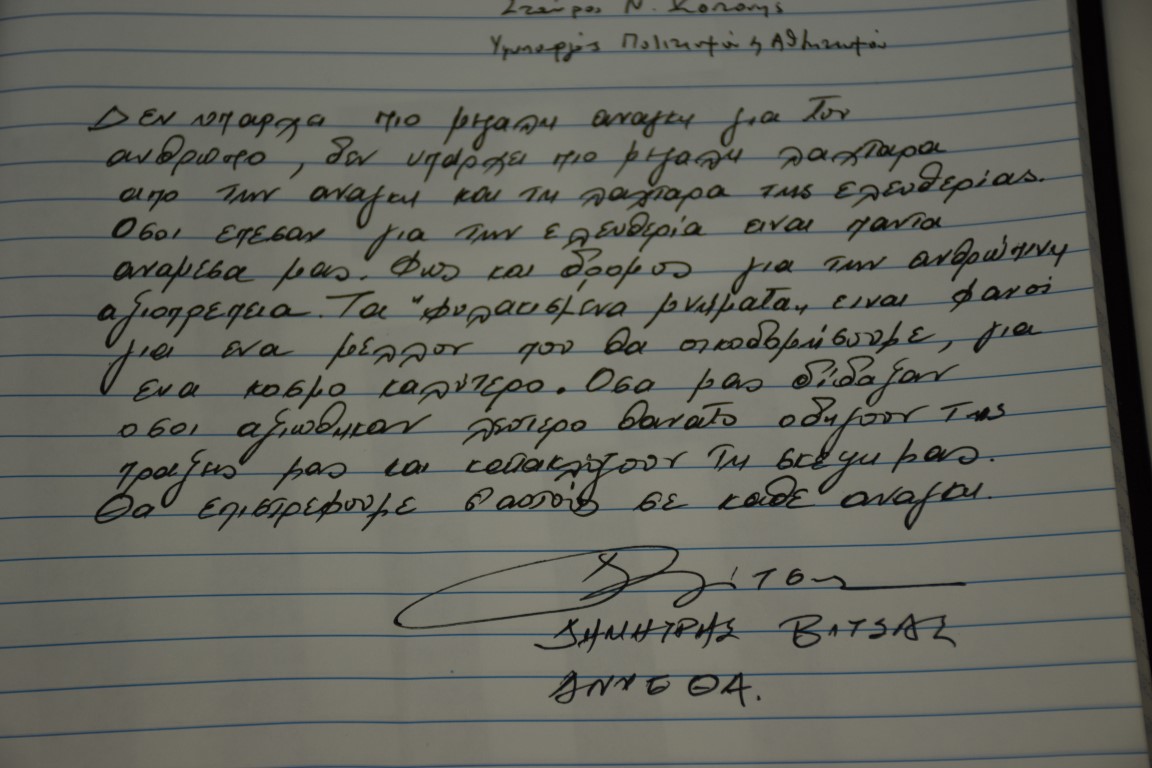 Σταύρος Ν. Κοντονής
Υφυπουργός Πολιτισμού & Αθλητισμού
Δεν υπαρχει πιο μεγαλη αναγκη για τον
ανθρωπο, δεν υπάρχει πιο μεγαλη λαχταρα
απο την αναγκη και τη λαχταρα της ελευθερίας.
Οσοι επεσαν για την ελευθερία ειναι παντα
αναμεσα μας. Φως και δρομος για την ανθρώπινη
αξιοπρεπεια. Τα "φυλακισμένα μνηματα" ειναι φανοί
για ενα μελλον που θα οικοδομήσουμε, για
ενα κοσμο καλύτερο. Οσα μας δίδαξαν
οσοι αξιωθηκαν λευτερο θανατο οδηγουν τις
πραξεις μας και κατακλύζουν τη σκεψη μας.
Θα επιστρεφουμε σ'αυτούς σε καθε αναγκη.
ΔΗΜΗΤΡΗΣ ΒΙΤΣΑΣ
ΑΝΥΕΘΑ.